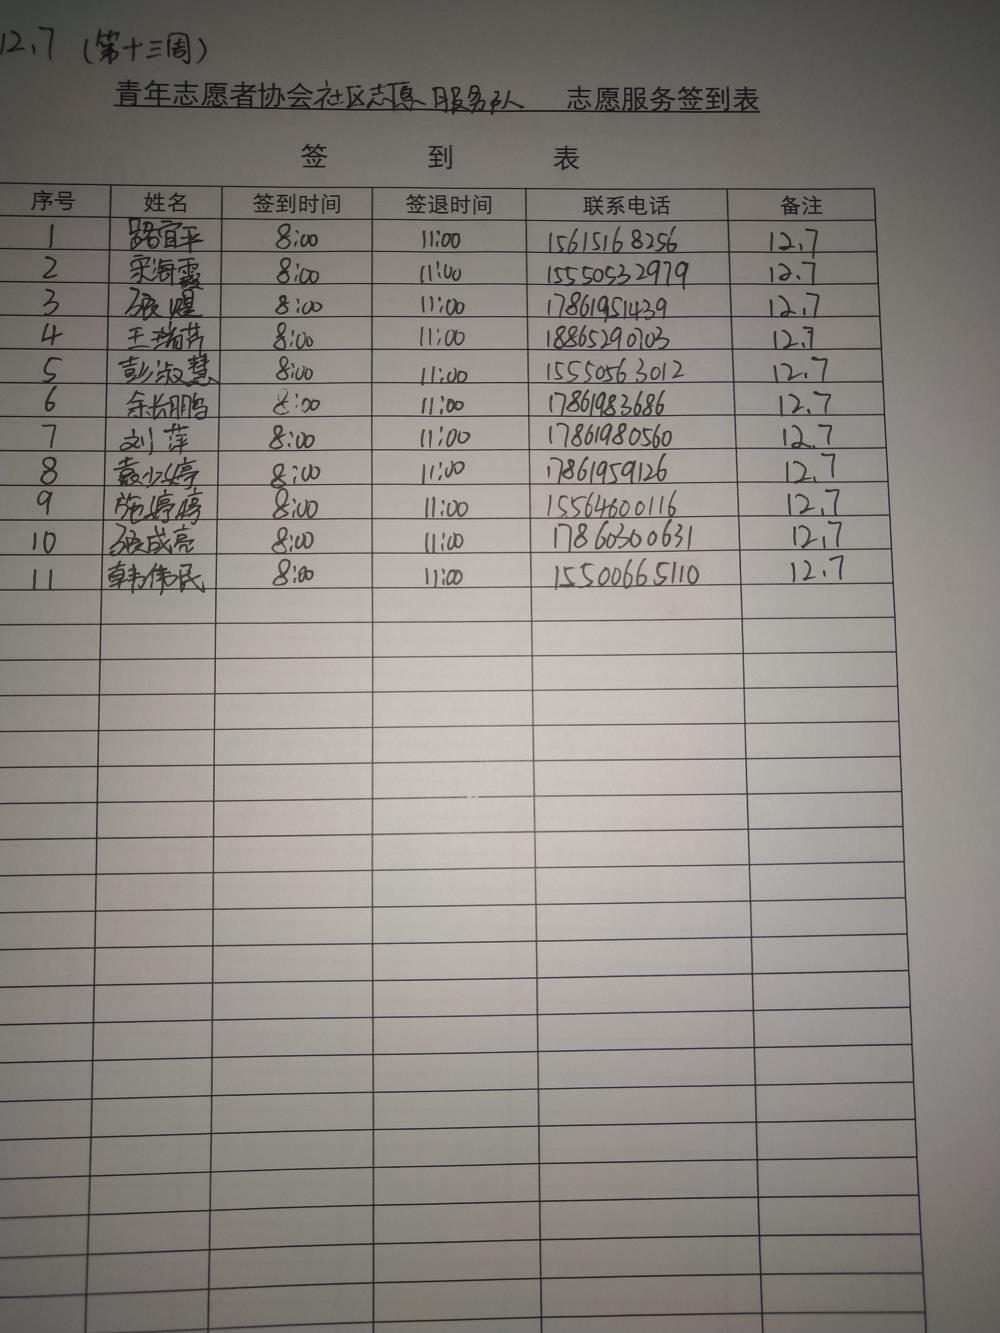 12.7 (第十三周)
青年志愿者协会社区志愿服务队 志愿服务签到表
签 到 表
序号 姓名 签到时间 签退时间 联系电话 备注
1 路宜平 8:00 11:00 15615168256 12.7
2 宋海霞 8:00 11:00 15550532979 12.7
3 张煜 8:00 11:00 17861951439 12.7
4 王瑞芹 8:00 11:00 18865290703 12.7
5 彭淑慧 8:00 11:00 15550563012 12.7
6 余长鹏 8:00 11:00 17861983686 12.7
7 刘萍 8:00 11:00 17861980560 12.7
8 袁少婷 8:00 11:00 17861959126 12.7
9 施婷婷 8:00 11:00 15564600116 12.7
10 张成亮 8:00 11:00 17860300631 12.7
11 韩伟民 8:00 11:00 15500665110 12.7